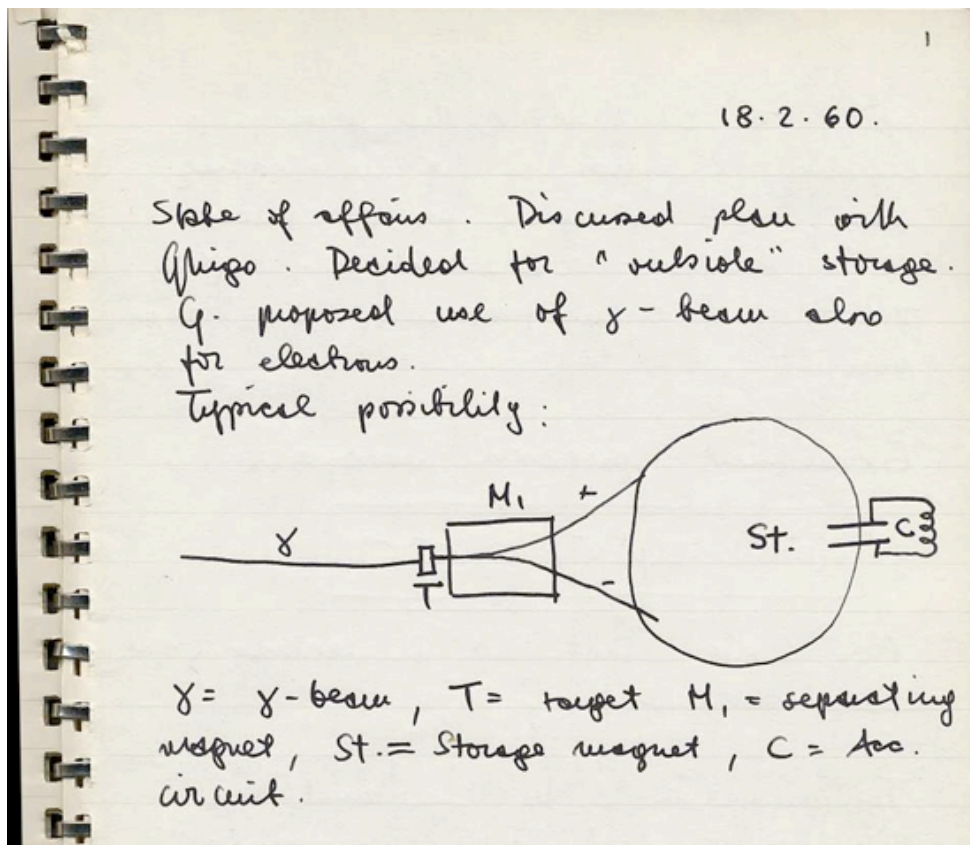 1
18.2.60.
State of affairs. Discussed plan with
Ghigo. Decided for "outside" storage.
G. proposed use of γ-beam also
for electrons.
Typical possibility:
M₁
+
γ
St.
C
-
T
γ = γ-beam, T = target M₁ = separating
magnet, St. = Storage magnet, C = Acc.
circuit.